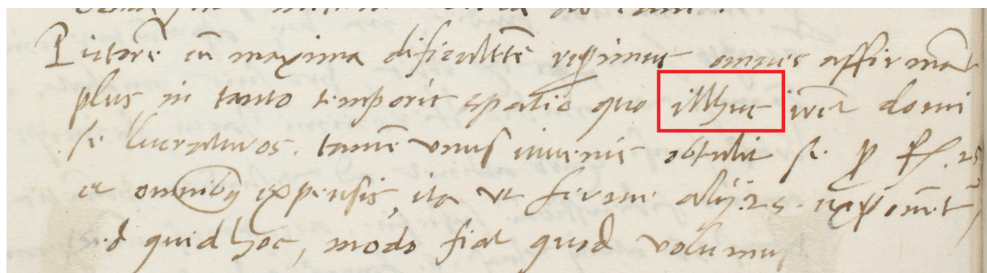 Pictorē cū maxima dificultāte reperimus omnes affirmāt
plus in tanto temporis spatio quo illhuc irēt domi
se lucraturos. tamē unus iuvenis obtulit se p fl. 25
et omnibus expensis, ita ut ferme alij 25 exponēt,
sed quid hoc, modo fiat quod volumus